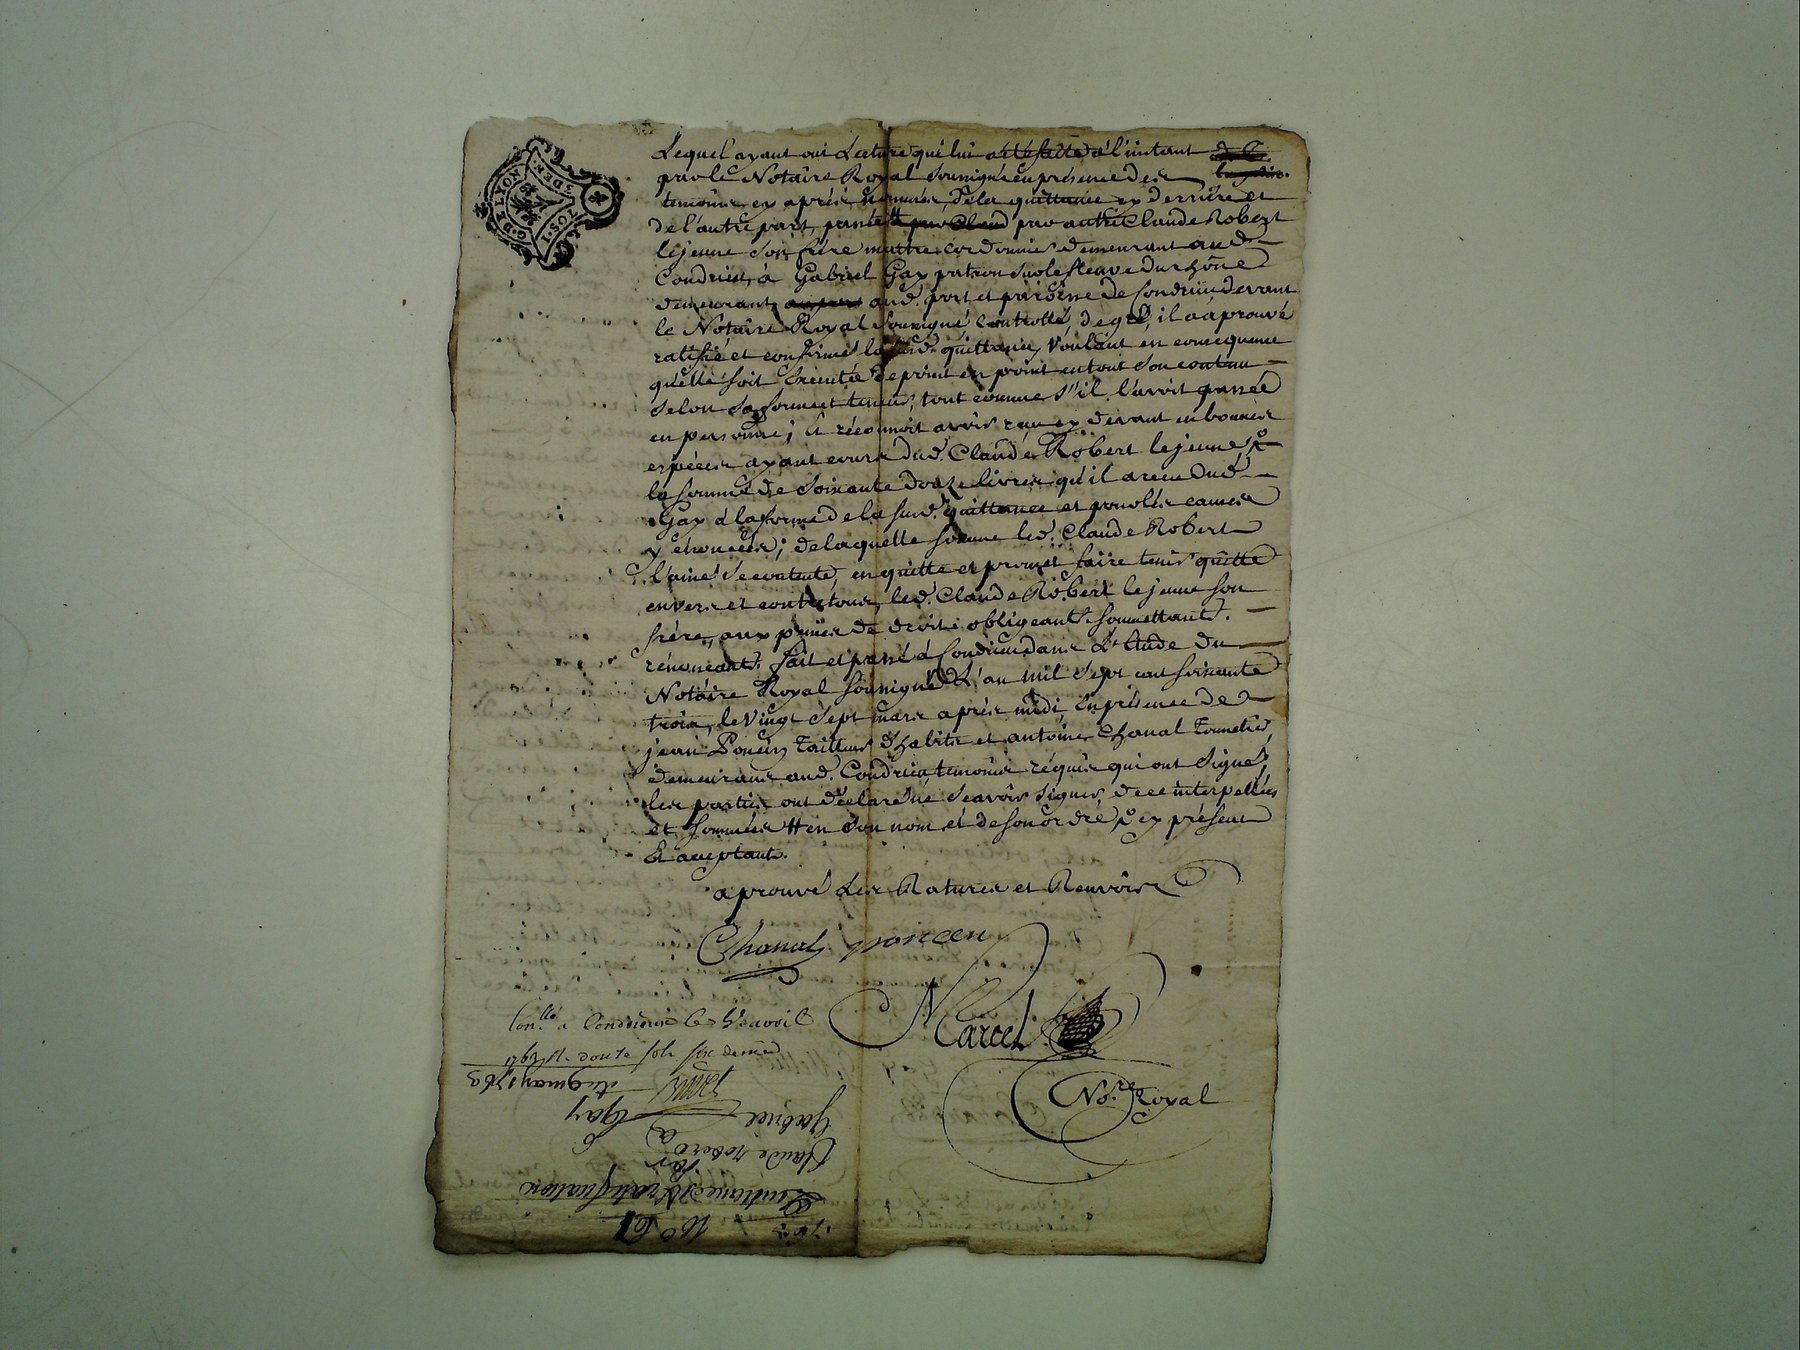 G. DE LYON
2. SOLS DEN.
Lequel ayant oui Lecture qui lui a été faitte à l'instant
par le Notaire Royal soussigné en présence des
temoins cy après nommés, de la quittance cy derrière et
de l'autre part, passée par Claud par autre Claude Robert
le jeune son frère maitre cordonnier demeurant aud.
Condrieu, à Gabriel Gay patron sur le fleuve du rhône
demeurant au port aud. port et paroisse de Condrieu devant
le Notaire Royal soussigné controllé, de gré, il a aprouvé
ratifié et confirmé lasusd. quittance, voulant en consequence
qu'elle soit executée de point en point en tout son contenu
selon sa forme et teneur, tout comme s'il l'avoit passée
en personne; et réconnoit avoir reçu cy devant en bonnes
espèces ayant cours dud. Claude Robert le jeune,
la somme de soixante douze livres qu'il a reçu dud.
Gay à la forme de la susd. quittance et pour les causes
y énoncées; de laquelle somme led. Claude Robert
l'ainé se contente, en quitte et promet faire tenir quitte
envers et contre tous, led. Claude Robert le jeune son
frère, aux peines de droit. obligeant. soumettant.
rénonçant. fait et passé à Condrieu dans L'Etude du
Notaire Royal soussigné L'an mil sept cent soixante
trois, le vingt sept mars après midi, En présence de
jean Poncin Tailleur d'habits et antoine Chanal Tonnelier,
demeurans aud. Condrieu, temoins réquis qui ont signé,
les parties ont déclaré ne sçavoir signer, de ce interpellées
et sommées # en son nom et de son ordre, cy présent
et acceptant.
aprouvé Les Ratures et Renvois
Chanal poncen
Marcel
No.re Royal
Con.llé à Condrieu le 5e avril
1763 R. douze sols six denier
du 9 mars 1763
Gabriel Gay
Claude robert a
par
Quittance et ratification
1763 No 61